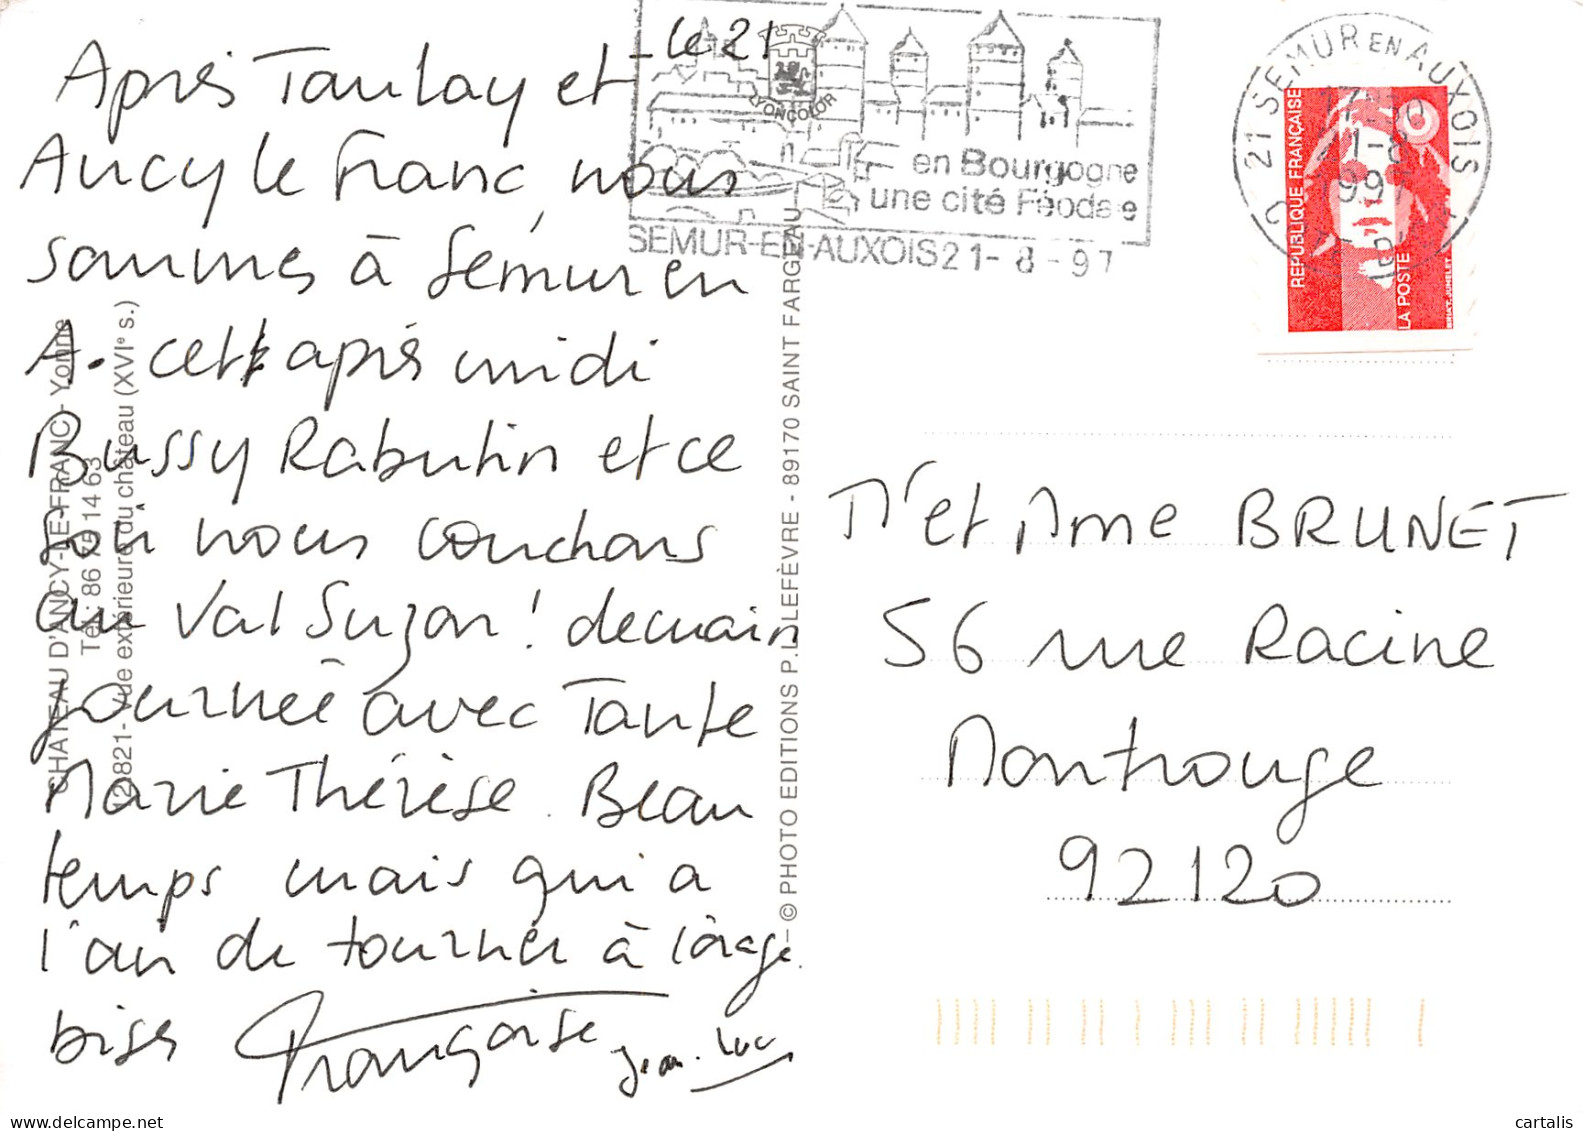 le 21
Après Taulay et
Ancy le Franc, nous
sommes à Semur en
A. cet après midi
Bussy Rabutin et ce
soir nous couchons
au Val Suzon ! demain
journée avec Tante
Marie Thérèse. Beau
temps mais qui a
l'air de tourner à l'orage.
bises Françoise Jean-Luc
CHATEAU D'ANCY-LE-FRANC - Yonne
Tél.: 86 75 14 63
- Vue extérieure du château (XVIe s.)
© PHOTO EDITIONS P. LEFÈVRE - 89170 SAINT FARGEAU
LYONCOLOR
en Bourgogne
une cité Féodale
SEMUR-EN-AUXOIS 21-8-97
21 SEMUR EN AUXOIS
21-8
1997
REPUBLIQUE FRANÇAISE
LA POSTE
BRIAT-JUMELET
Mr et Mme BRUNET
56 rue Racine
Montrouge
92120
cartalis